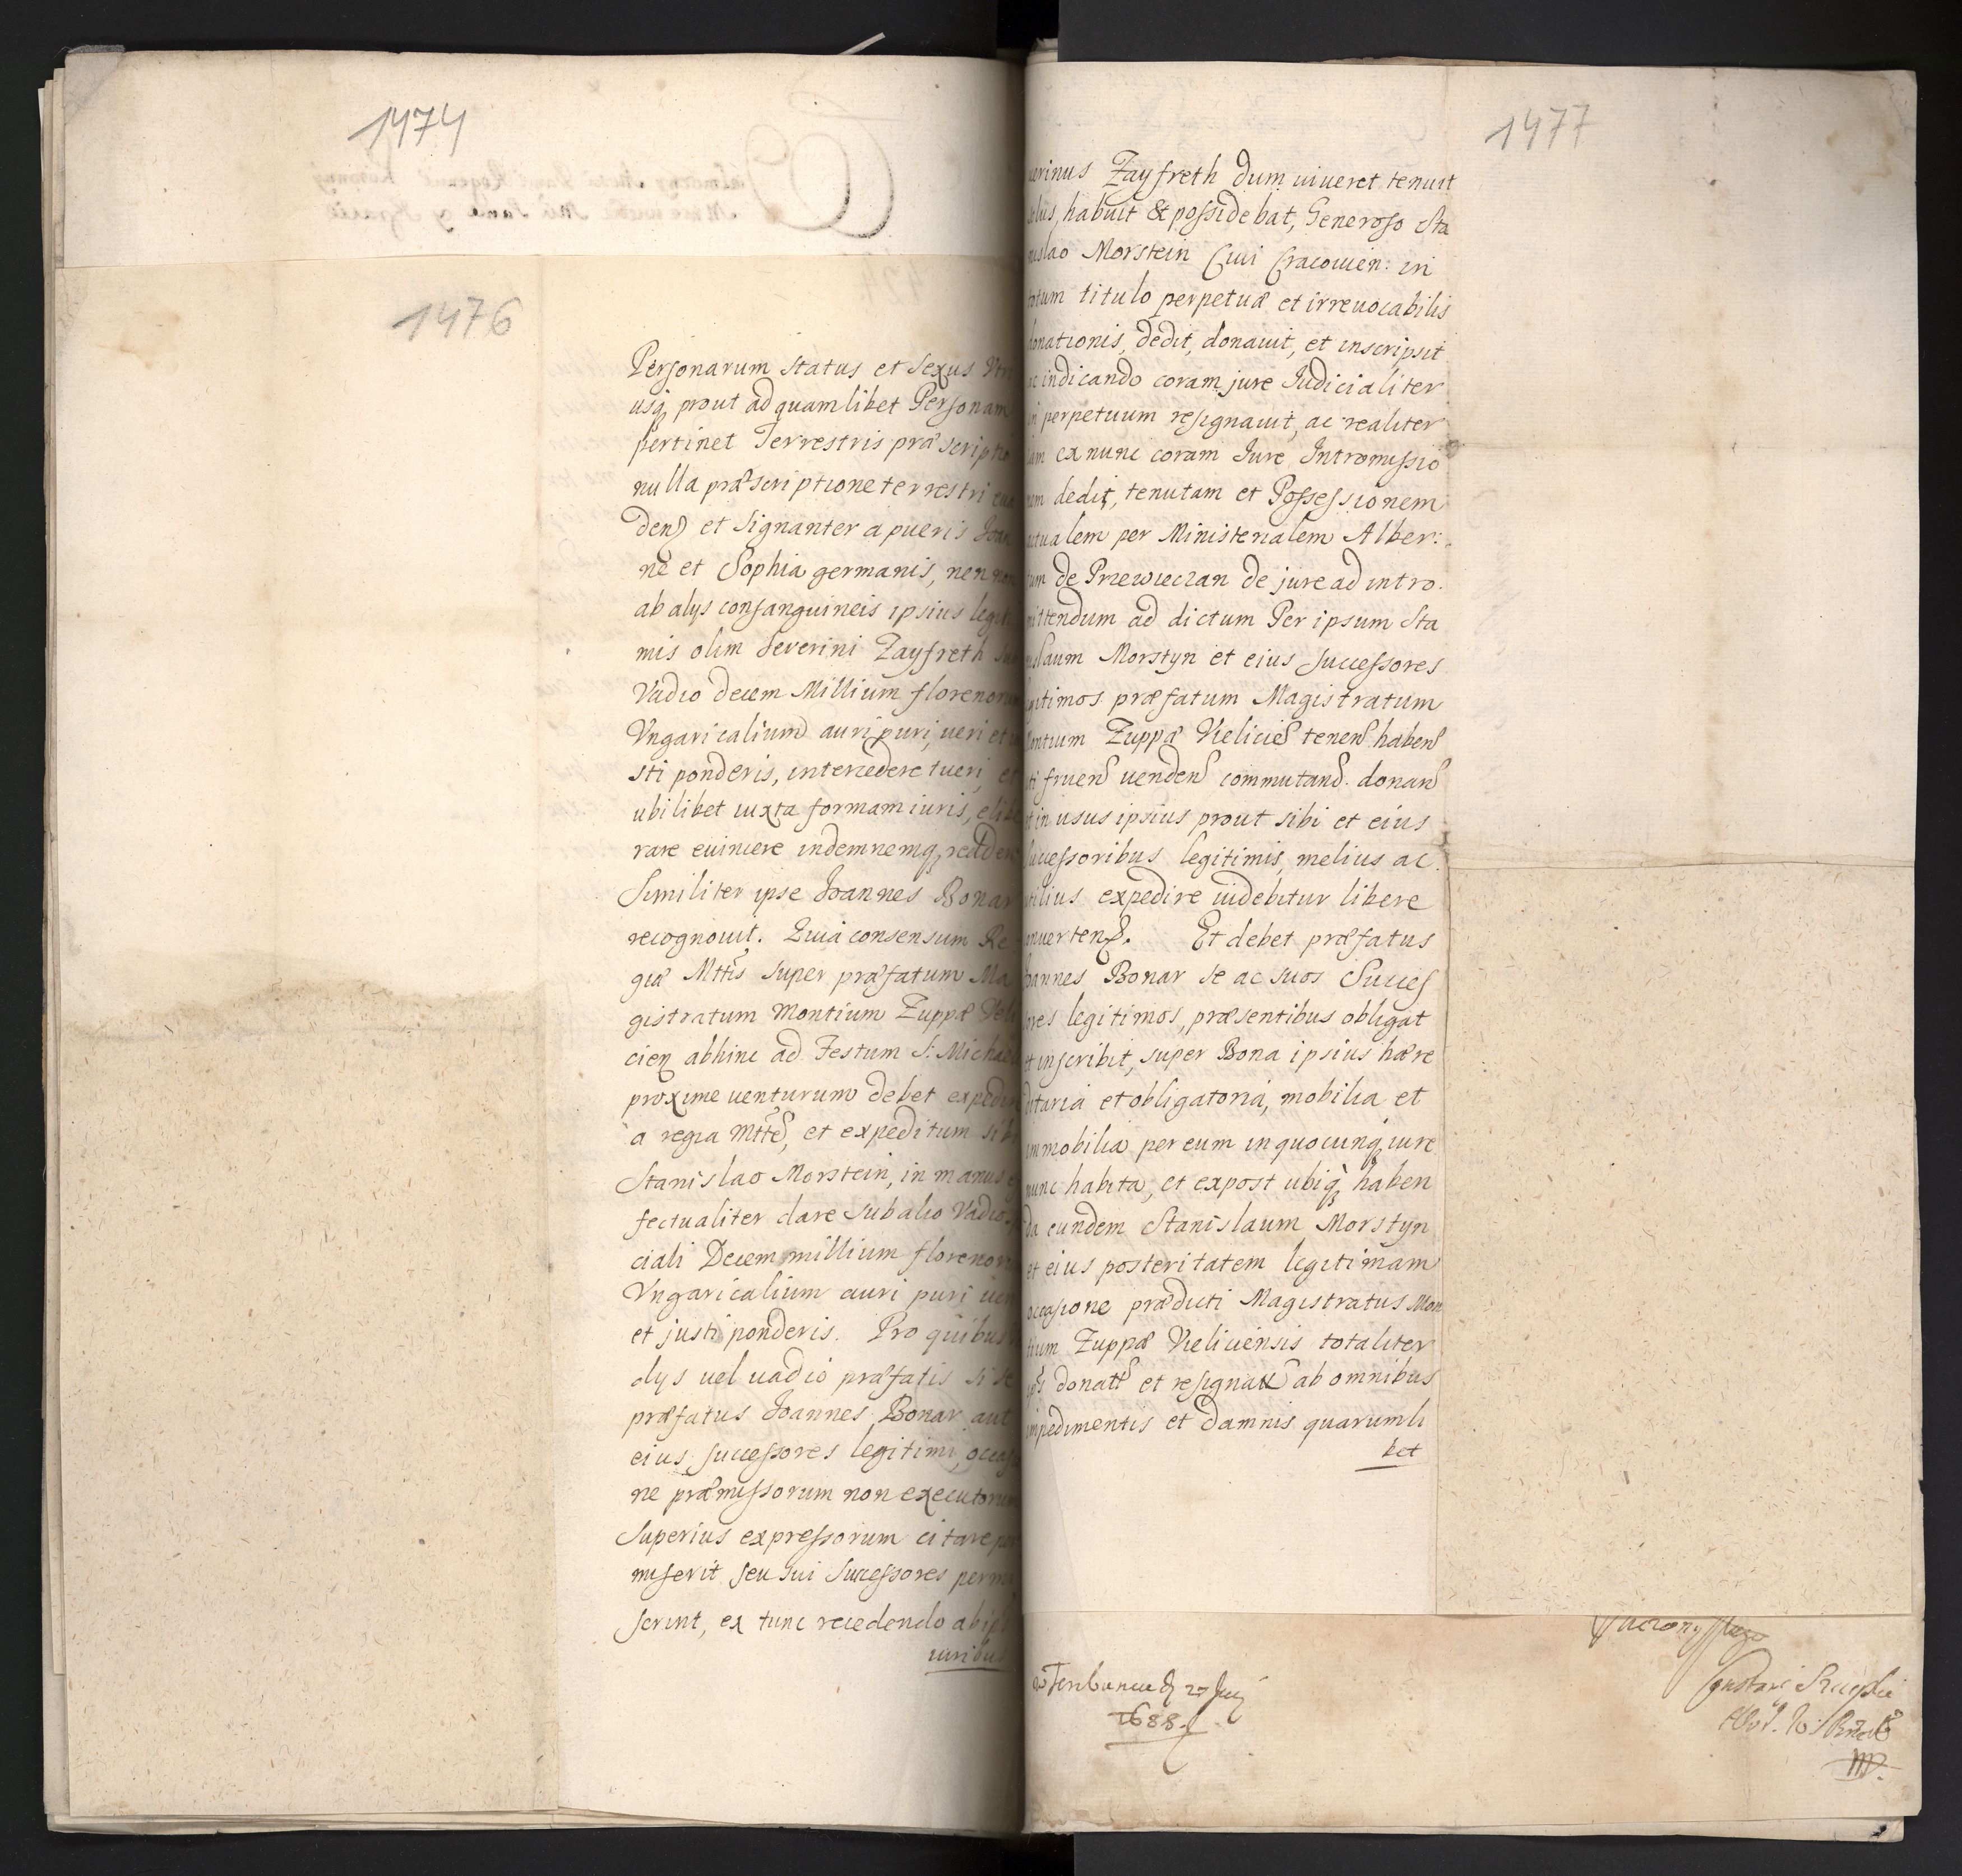 1474
1476
Personarum status et sexus Utri
usq prout ad quamlibet Personam
pertinet Terrestris præscriptio
nulla præscriptione terrestri eua
den) et signanter a pueris Joan
ne et Sophia germanis, nen non
ab alys consanguineis ipsius legiti
mis olim Severini Zayfreth sub
Vadio decem Millium florenorum
Vngaricalium auri puri, ueri et iu
sti ponderis, intercedere tueri, et
ubilibet iuxta formam iuris, elibe
rare euincere indemnemq, redden
Similiter ipse Joannes Bonar
recognouit. Quia consensum Re-
giæ Mttis super præfatum Ma
gistratum Montium Zuppæ Veli
cien abhinc ad Festum S: Michaelis
proxime uenturum debet expedire
a regia Mtte, et expeditum sibi
Stanislao Morstein, in manus ef
fectualiter dare sub alio Vadio
ciali Decem millium florenorum
Vngaricalium auri puri ueri
et justi ponderis. Pro quibus
dys uel uadio præfatis si se
præfatus Joannes Bonar aut
eius successores legitimi, occasio
ne præmissorum non executorum
Superius expressorum citare per
miserit seu sui Successores permi
serint, ex tunc recedendo ab ip
iuribus
1477
uerinus Zayfreth dum uiueret tenuit
habuit & possidebat, Generoso Sta
nislao Morstein Ciui Cracouien: in
totum titulo perpetuæ et irreuocabilis
donationis, dedit, donauit, et inscripsit
ac indicando coram jure Judicialiter
in perpetuum resignauit, ac realiter
iam ex nunc coram Jure Intromissio
nem dedit, tenutam et Possessionem
actualem per Ministerialem Alber:
tum de Przewieczan de jure ad intro.
mittendum ad dictum Per ipsum Sta
nislaum Morstyn et eius successores
legitimos præfatum Magistratum
Montium Zuppæ Vieliciens tenen haben
uti fruen uenden commutand. donan
et in usus ipsius prout sibi et eius
successoribus legitimis, melius ac
utilius expedire uidebitur libere
conuerten. Et debet præfatus
Joannes Bonar se ac suos Succes
sores legitimos, præsentibus obligat
et inscribit, super Bona ipsius hære
ditaria et obligatoria, mobilia et
immobilia per eum in quocunq iure
nunc habita, et expost ubiq haben
da eundem Stanislaum Morstyn
et eius posteritatem legitimam
occasione prædicti Magistratus Mon
tium Zuppæ Vieliciensis totaliter
donatt et resignatt ab omnibus
impedimentis et damnis quarumli
bet
27
1688.